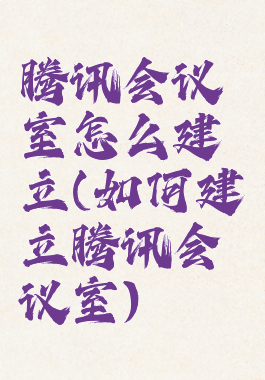 腾讯会议
室怎么建
立(如何建
立腾讯会
议室)